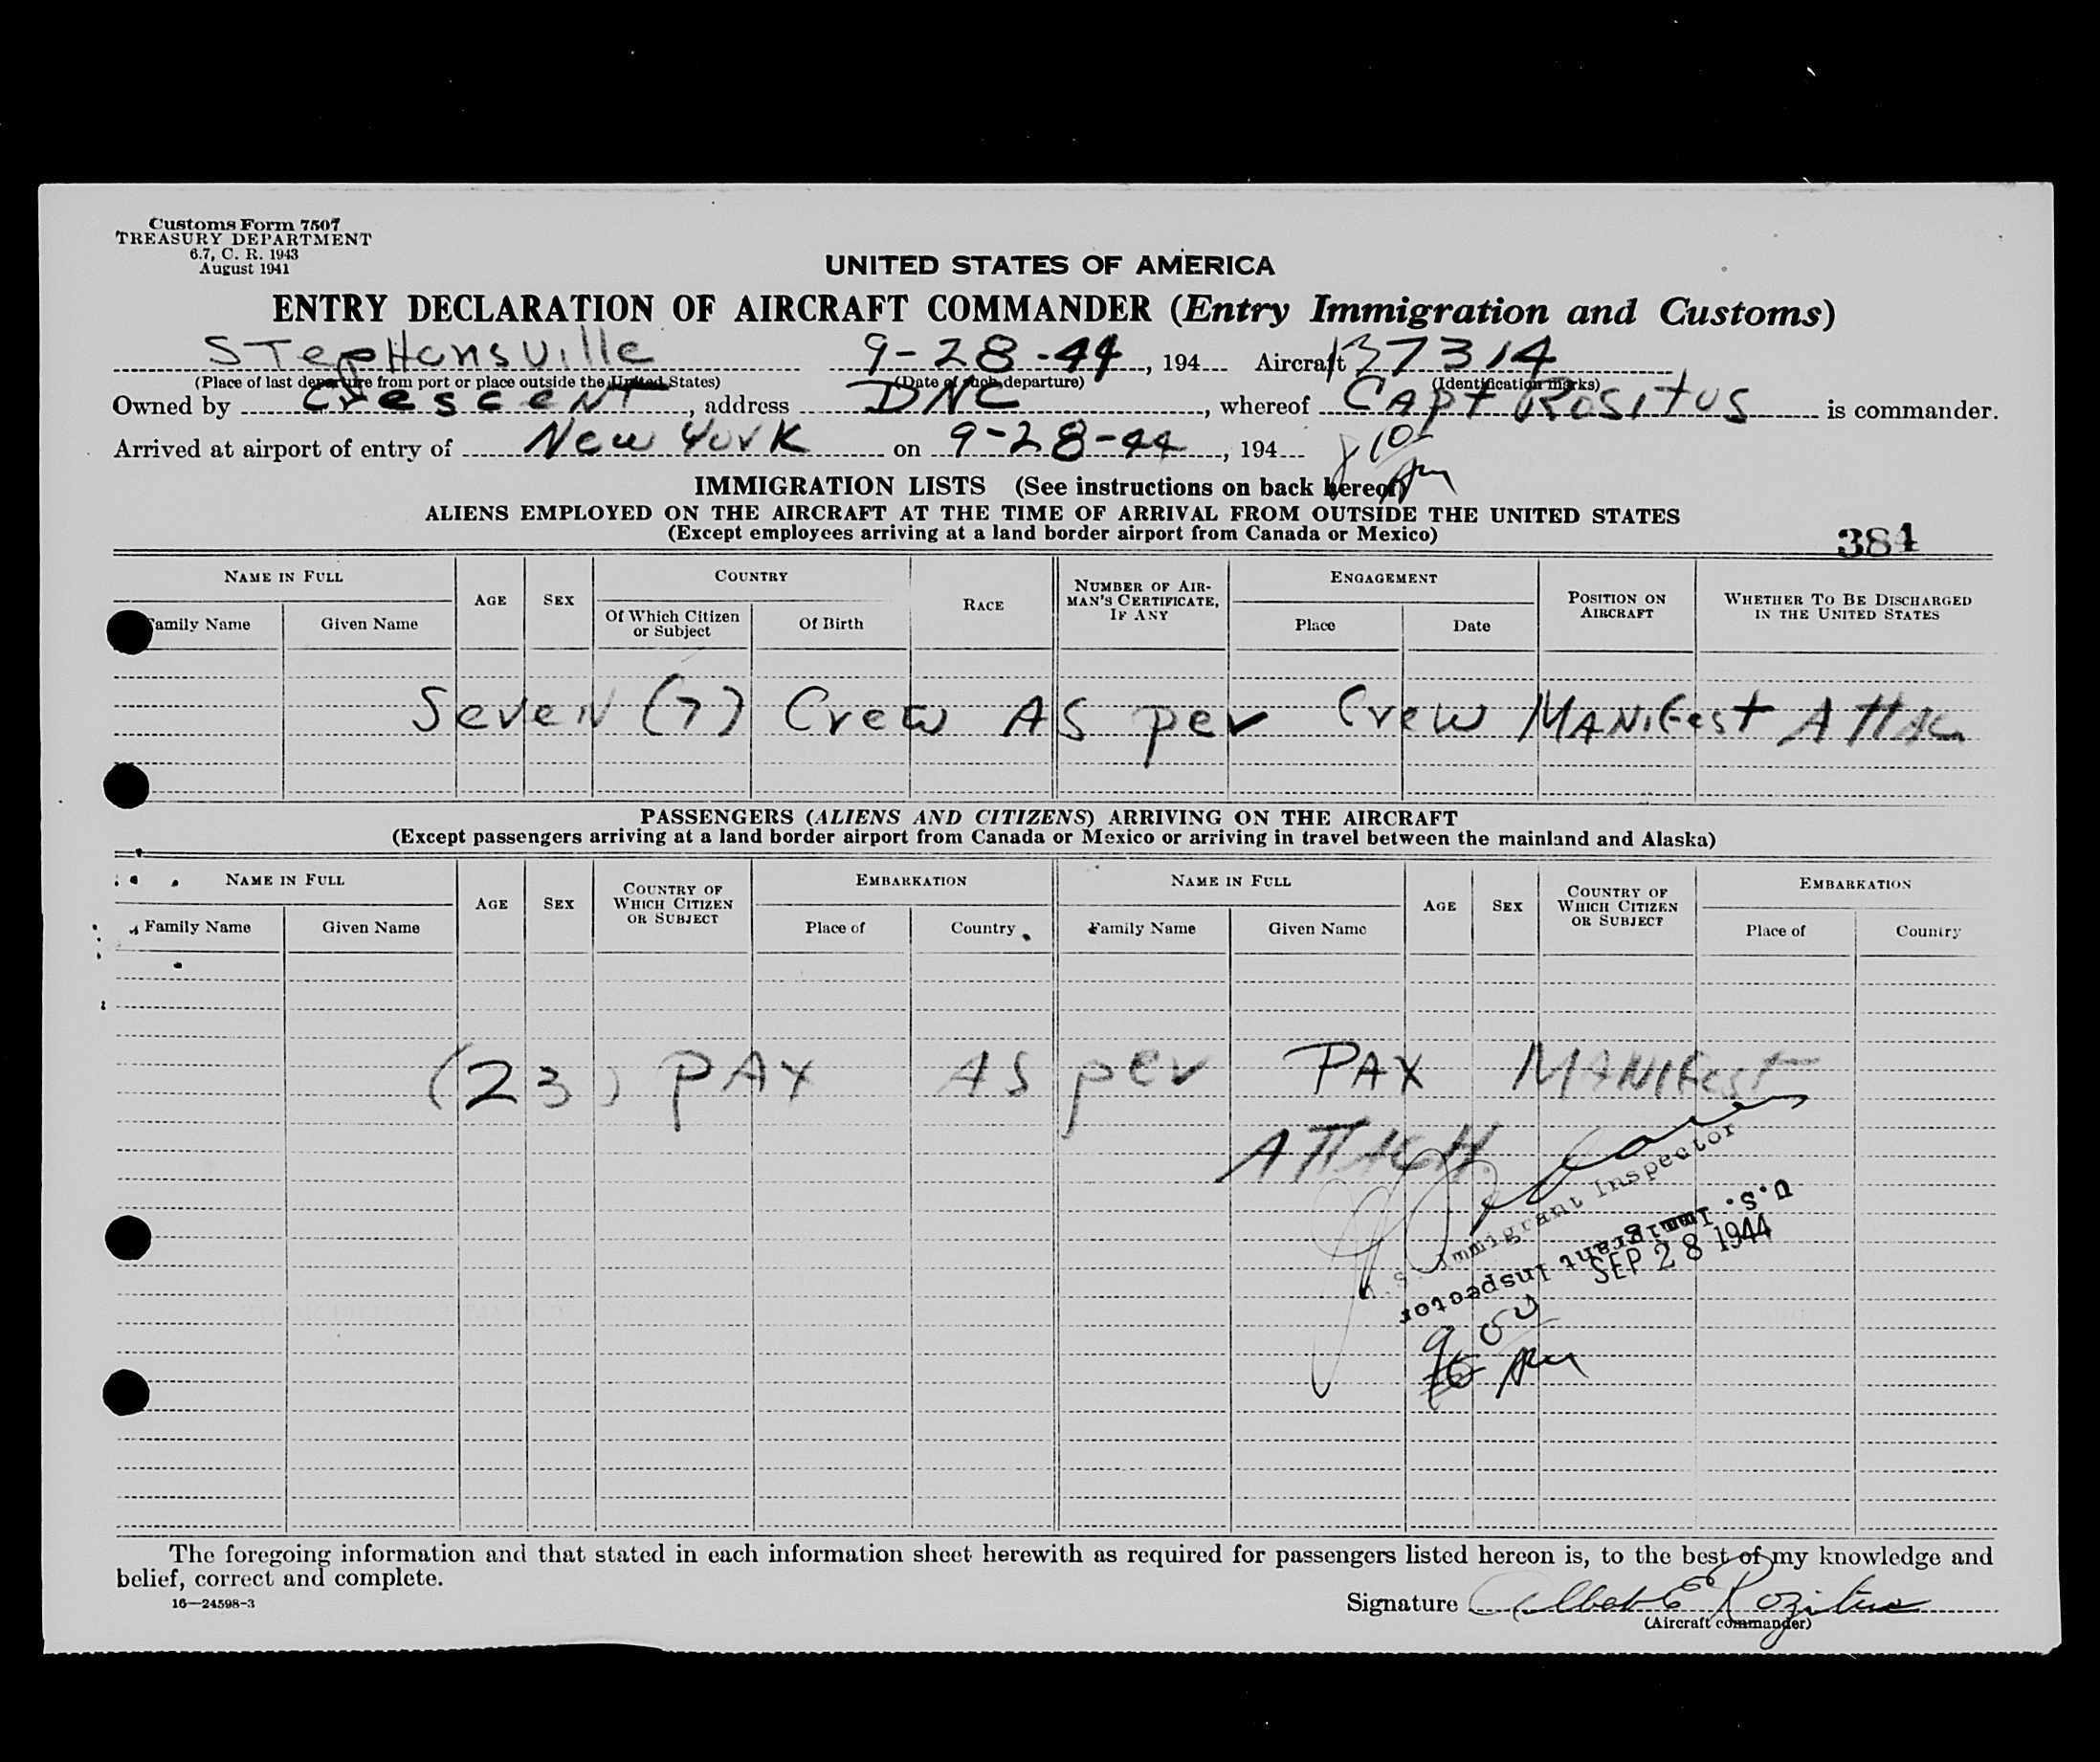 Customs Form 7507
TREASURY DEPARTMENT
6.7, C. R. 1943
August 1941
UNITED STATES OF AMERICA
ENTRY DECLARATION OF AIRCRAFT COMMANDER (Entry Immigration and Customs)
STepHensville 9-28-44, 194 Aircraft 37314
(Place of last departure from port or place outside the United States) (Date of such departure) (Identification marks)
Owned by Crescent, address DNC, whereof CApt Rositus is commander.
Arrived at airport of entry of New York on 9-28-44, 194 8 10
IMMIGRATION LISTS (See instructions on back hereof)
ALIENS EMPLOYED ON THE AIRCRAFT AT THE TIME OF ARRIVAL FROM OUTSIDE THE UNITED STATES
(Except employees arriving at a land border airport from Canada or Mexico)
384
NAME IN FULL AGE SEX COUNTRY RACE NUMBER OF AIRMAN'S CERTIFICATE, IF ANY ENGAGEMENT POSITION ON AIRCRAFT WHETHER TO BE DISCHARGED IN THE UNITED STATES
Family Name Given Name Of Which Citizen or Subject Of Birth Place Date
Seven (7) Crew AS per Crew MANifest
PASSENGERS (ALIENS AND CITIZENS) ARRIVING ON THE AIRCRAFT
(Except passengers arriving at a land border airport from Canada or Mexico or arriving in travel between the mainland and Alaska)
NAME IN FULL AGE SEX COUNTRY OF WHICH CITIZEN OR SUBJECT EMBARKATION NAME IN FULL AGE SEX COUNTRY OF WHICH CITIZEN OR SUBJECT EMBARKATION
Family Name Given Name Place of Country Family Name Given Name Place of Country
(23) PAX AS per PAX MANIFest
ATTACH
U.S. Immigrant Inspector
U.S. Immigrant Inspector
SEP 28 1944
9 00
The foregoing information and that stated in each information sheet herewith as required for passengers listed hereon is, to the best of my knowledge and
belief, correct and complete.
16—24598-3
Signature Albert E Rozitus
(Aircraft commander)